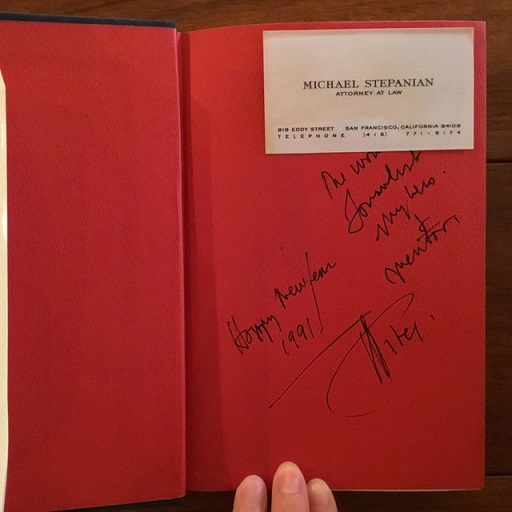 MICHAEL STEPANIAN
ATTORNEY AT LAW
819 EDDY STREET SAN FRANCISCO, CALIFORNIA 94109
TELEPHONE (415) 771-6174
The
Journalist
my hero.
&
mentor.
Happy New Year
1991